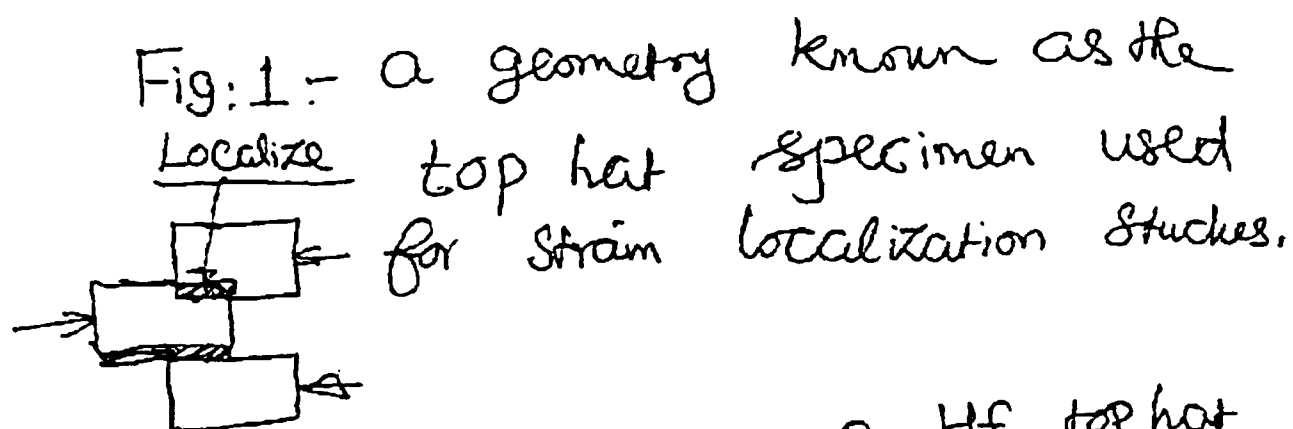 Fig: 1:- a geometry known as the
Localize
top hat specimen used
for strain localization studies.
a Hf top hat